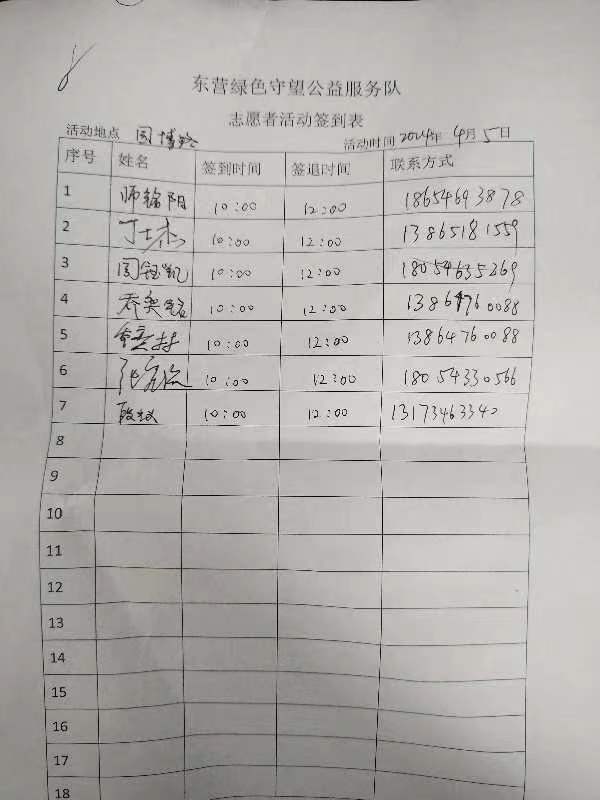 东营绿色守望公益服务队
志愿者活动签到表
活动地点 园博 活动时间 2024年 4月5日
序号 姓名 签到时间 签退时间 联系方式
1 师铭阳 10:00 12:00 18654693878
2 丁士杰 10:00 12:00 13865181559
3 凯 10:00 12:00 18054635269
4 乔奕铭 10:00 12:00 13864760088
5 10:00 12:00 13864760088
6 张 10:00 12:00 18054330566
7 段 10:00 12:00 13173463340
8
9
10
11
12
13
14
15
16
17
18